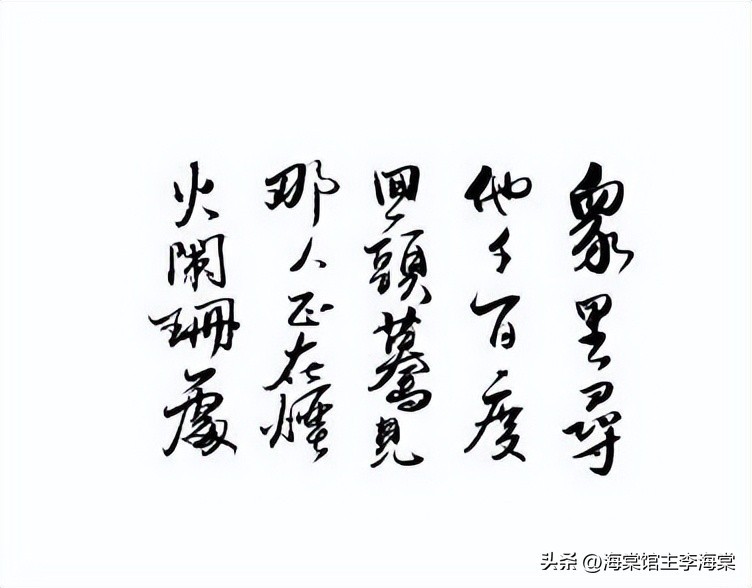 衆里尋
他千百度
迴頭驀見
那人正在煙
火闌珊處
头条 @海棠馆主李海棠